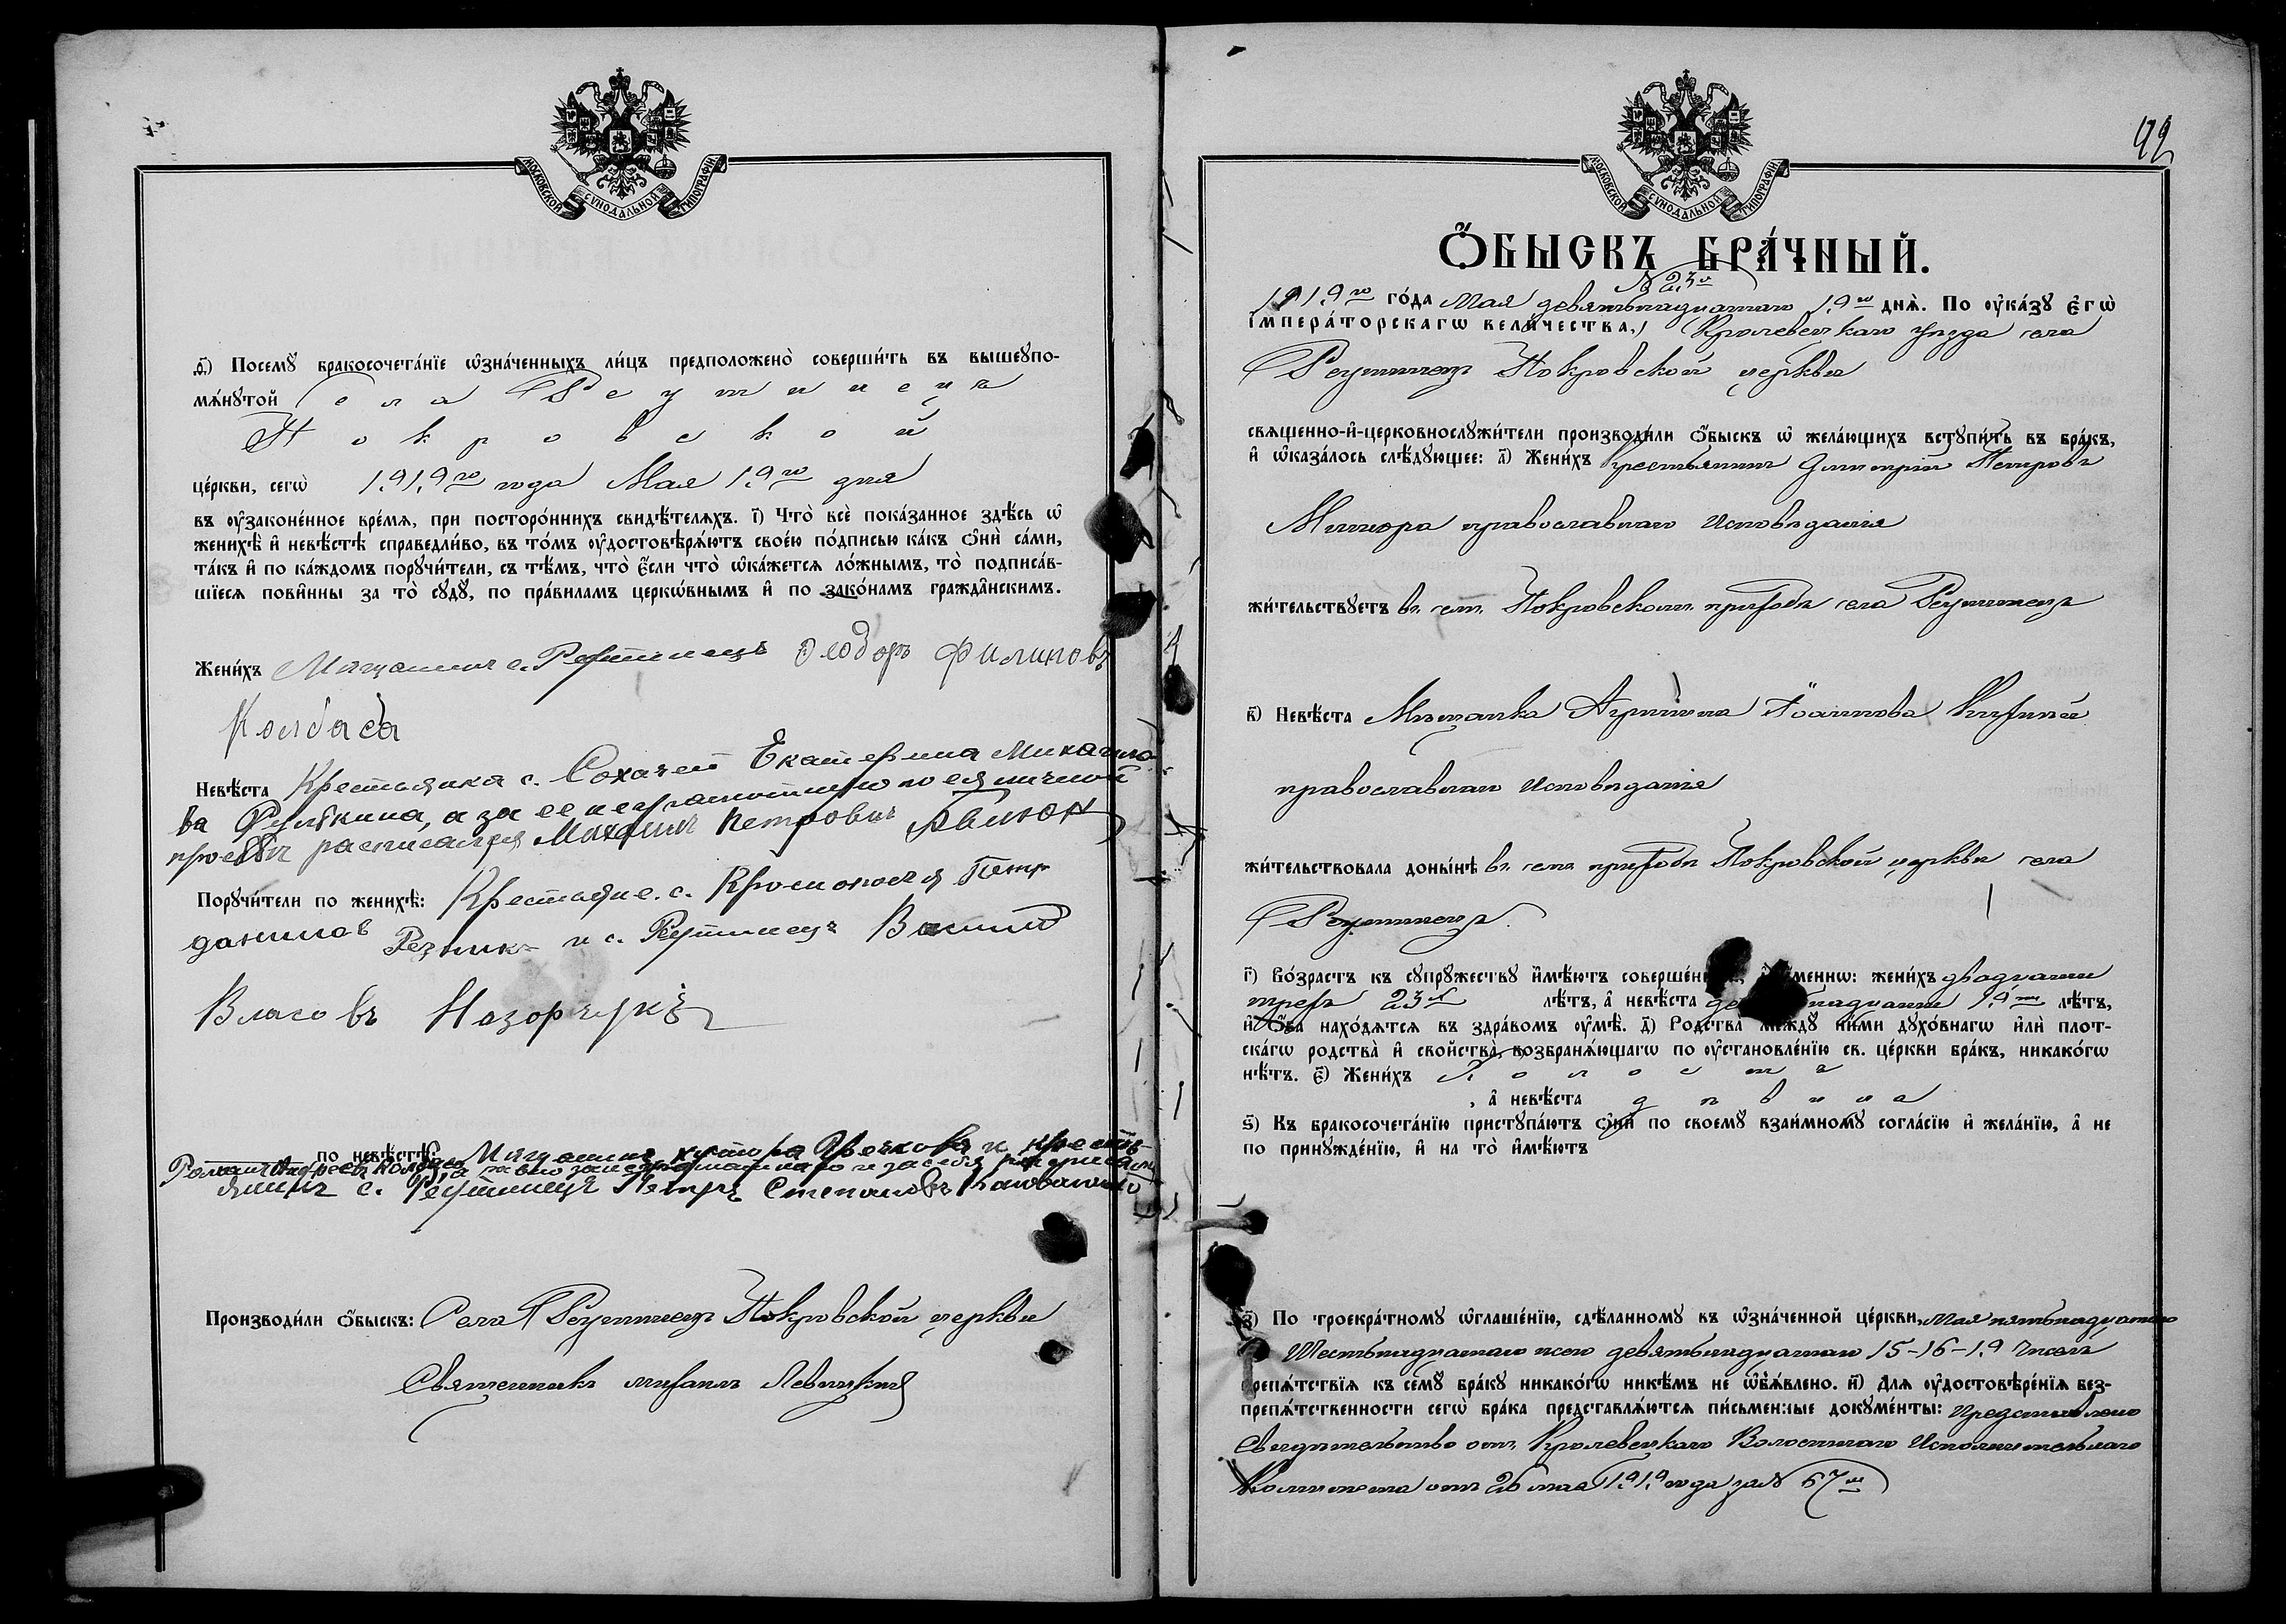 МОСКОВСКОЙ СѴНОДАЛЬНОЙ ТИПОГРАФІИ
д҃) Посемꙋ бракосочета́нїе ѡ҆зна́ченныхъ ли́цъ предположено̀ соверши́ть въ вышеꙋпо-
мѧ́нꙋтой Села Реутинецъ
Покровской
це́ркви, сегѡ̀ 1919го года Мая 19го дня
въ ᲂу҆законе́нное вре́мѧ, при посторо́ннихъ свидѣ́телѧхъ. і҃) Что̀ всѐ пока́занное здѣ́сь ѡ҆
женихѣ̀ и҆ невѣ́стѣ справедли́во, въ то́мъ ᲂу҆достовѣрѧ́ютъ свое́ю по́дписью ка́къ ѻ҆нѝ са́ми,
та́къ и҆ по ка́ждомъ порꙋчи́тели, съ тѣ́мъ, что̀ є҆́сли что̀ ѡ҆ка́жетсѧ ло́жнымъ, то̀ подписа́в-
шїесѧ пови́нны за то̀ сꙋдꙋ̀, по пра́виламъ церкѡ́внымъ и҆ по зако́намъ гражда̑нскимъ.
Жени́хъ Мищанинъ с. Реутинецъ Феодоръ Филиповъ
Колбаса
Невѣ́ста Крестьянка с. Сохачей Екатерина Михаило-
ва Рулькина, а за ее неграмотную по ея личной
просьби расписался Михаилъ Петровичъ
Порꙋчи́тели по женихѣ̀: Крестьяне. с. Петр
данилов Резник и с. Реутинецъ
Власовъ Назорчукъ
по невѣ́стѣ: Мищанинъ хутора и кресть-
Романъ Андреевъ Колбаса
янинъ с. Реутинецъ Петръ Степановъ
Производи́ли ѻ҆́быскъ: Села Реутинецъ Покровской церкви
Священникъ Михаилъ Левицкий
МОСКОВСКОЙ СѴНОДАЛЬНОЙ ТИПОГРАФІИ
92
Ѻ҆́БЫСКЪ БРА́ЧНЫЙ.
№ 23й
1919го го́да Мая девятьнадцатаго 19го днѧ̀. По ᲂу҆ка́зꙋ є҆гѡ̀
і҆мпера́торскагѡ вели́чества, Кролевецкаго уезда села
Реутинецъ Покровской церкви
свѧщенно-и҆-церковнослꙋжи́тели производи́ли ѻ҆́быскъ ѡ҆ жела́ющихъ встꙋпи́ть въ бра́къ,
и҆ ѡ҆каза́лось слѣ́дꙋющее: а҃) Жени́хъ Крестьянинъ Димитрій Петровъ
православнаго исповѣданія
жи́тельствꙋетъ въ семъ Покровскомъ приходѣ села Реутинецъ
в҃) Невѣ́ста Мѣщанка Агрипина Іоаннова
православнаго исповѣданія
жи́тельствовала доны́нѣ въ семъ приходѣ Покровской церкви села
Реутинецъ.
г҃) Во́зрастъ къ сꙋпрꙋ́жествꙋ и҆мѣ́ютъ менни: жени́хъ двадцати
трехъ 23х лѣ́тъ, а҆ невѣ́ста 19ти лѣ́тъ,
и҆ ѻ҆́ба нахо́дѧтсѧ въ здра́вомъ ᲂу҆мѣ̀. д҃) Родства̀ междꙋ̀ ни́ми дꙋхо́внагѡ и҆лѝ плот-
ска́гѡ родства̀ и҆ свойства̀, возбранѧ́ющагѡ по ᲂу҆становле́нїю св. це́ркви бра́къ, никако́гѡ
нѣ́тъ. є҃) Жени́хъ Холостъ
, а҆ невѣ́ста дѣвица
ѕ҃) Къ бракосочета́нїю пристꙋпа́ютъ ѻ҆нѝ по своемꙋ̀ взаи́мномꙋ согла́сїю и҆ жела́нїю, а҆ не
по принꙋжде́нїю, и҆ на то̀ и҆мѣ́ютъ
з҃) По троекра́тномꙋ ѡ҆глаше́нїю, сдѣ́ланномꙋ въ ѡ҆зна́ченной це́ркви, Мая пятьнадцатаго
Шестьнадцатаго и девятьнадцатаго 15-16-19 числъ
препѧ́тствїѧ къ семꙋ̀ бра́кꙋ никако́гѡ никѣ́мъ не ѡ҆бꙗ́влено. и҃) Длѧ ᲂу҆достовѣре́нїѧ без-
препѧ́тственности сегѡ̀ бра́ка представлѧ́ютсѧ пи́сьменные докꙋме́нты: Представлено
Свидѣтельство отъ Кролевецкаго Волостнаго Исполнительнаго
Комитета отъ 26 мая 1919 года за № 67м